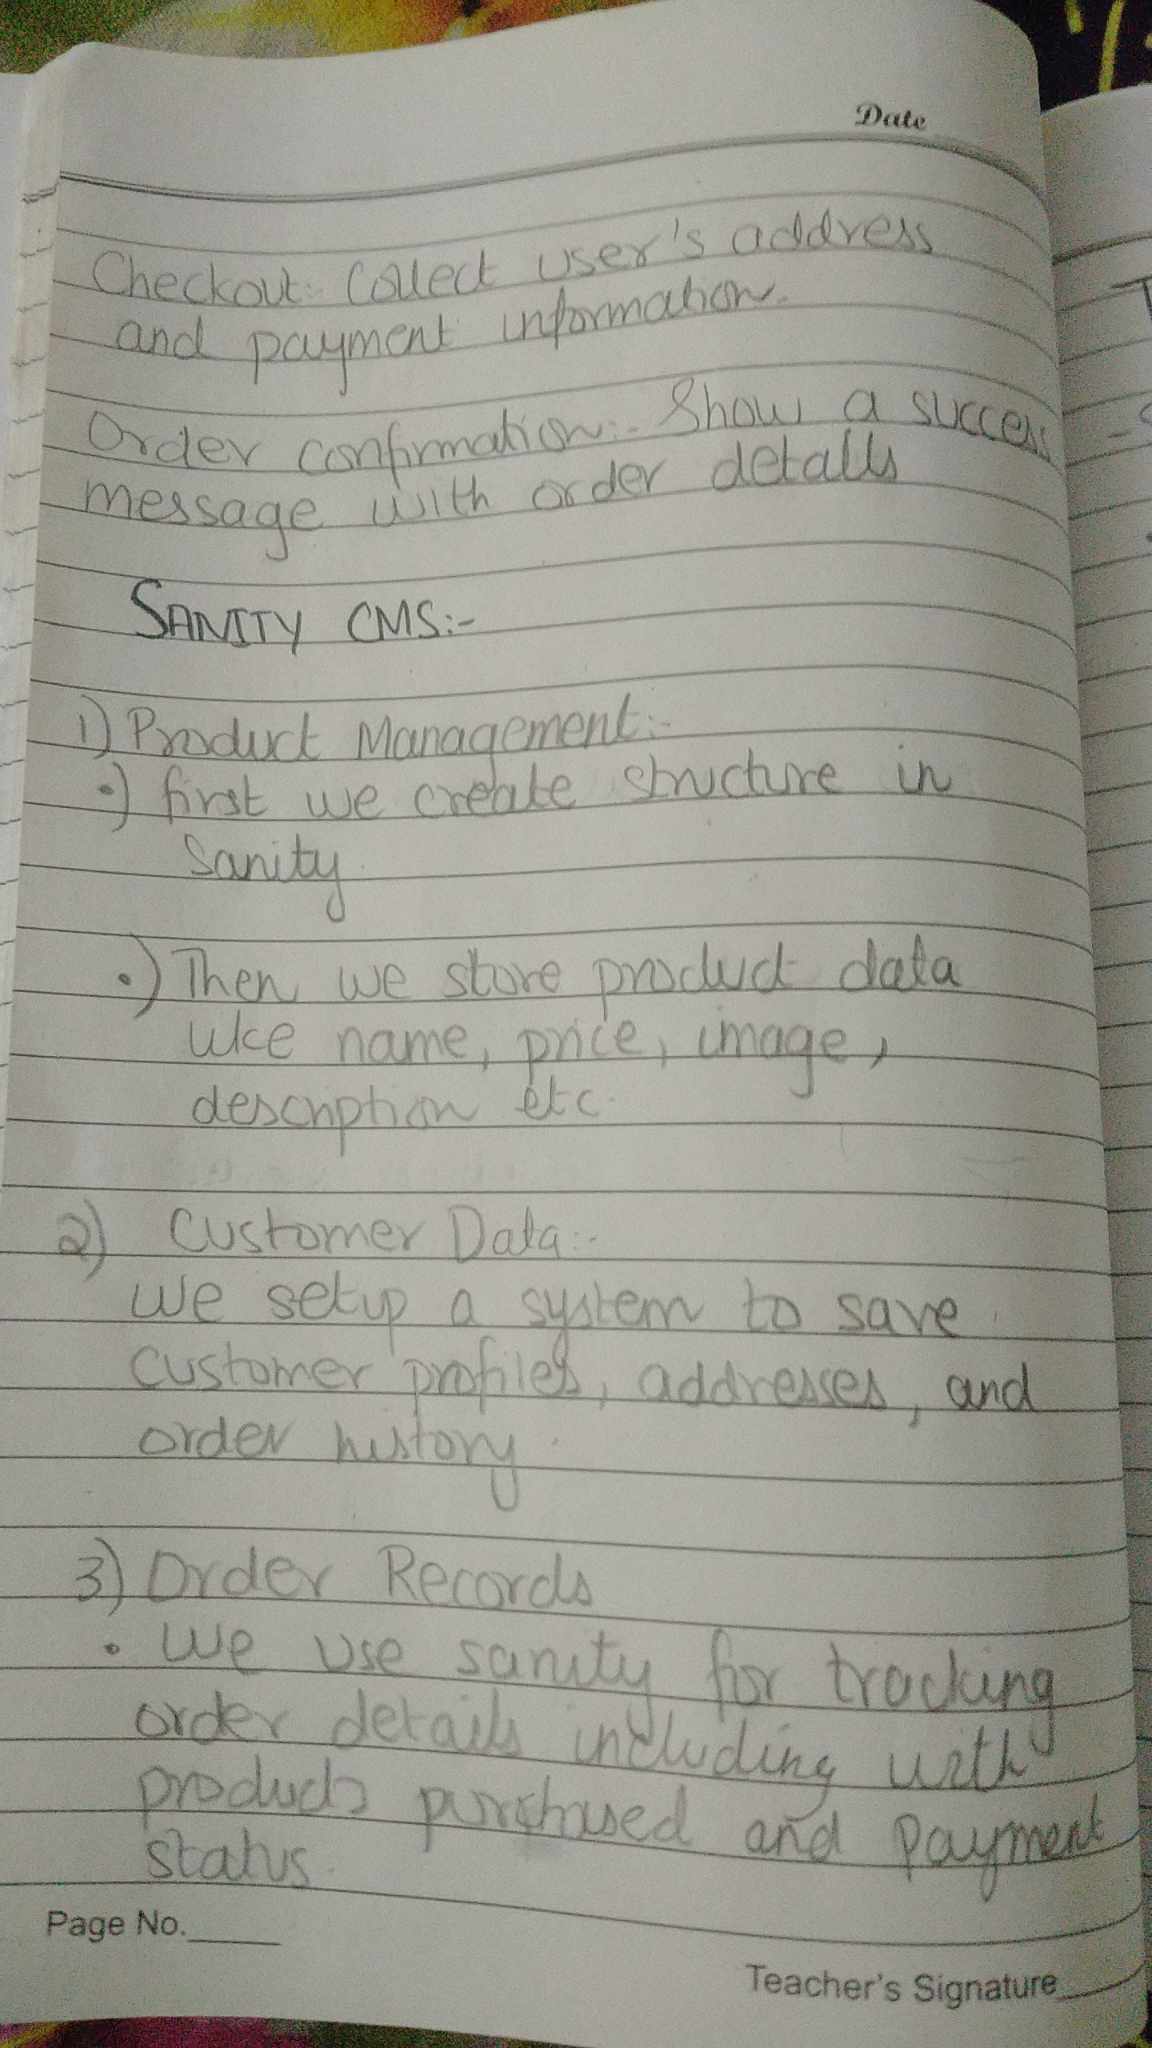 Date
Checkout: Collect user's address
and payment information.
Order confirmation:- Show a success
message with order details
SANITY CMS:-
1) Product Management:-
•) first we create structure in
Sanity.
•) Then we store product data
like name, price, image,
description etc.
2) Customer Data:-
We setup a system to save
customer profiles, addresses, and
order history.
3) Order Records
• We use sanity for tracking
order details including with
products purchased and payment
status.
Page No.
Teacher's Signature